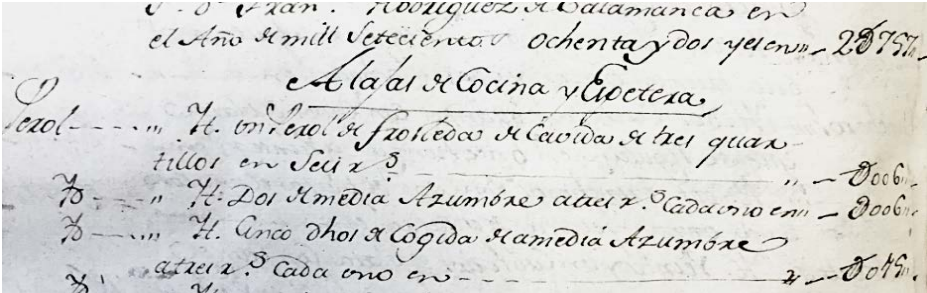 S.r D.n Fran.co Rodriguez de Salamanca en
el Año de mill Seteciento.s ochenta y dos y es en,, - 2D757,,
Alajas de Cocina y Espetera
Perol - - - - ,, Yt. un Perol de frosleda de Cavida de tres quar-
tillos en Seis r.s ,, - D006,,
Yd - - - ,, Yt. Dos de media Azumbre atres r.s Cada uno en,, - D006,,
Yd - - - ,, Yt. Cinco dhos de Cogida de a media Azumbre
atres r.s Cada uno en - - - ,, - D015,,
Yd Yt.